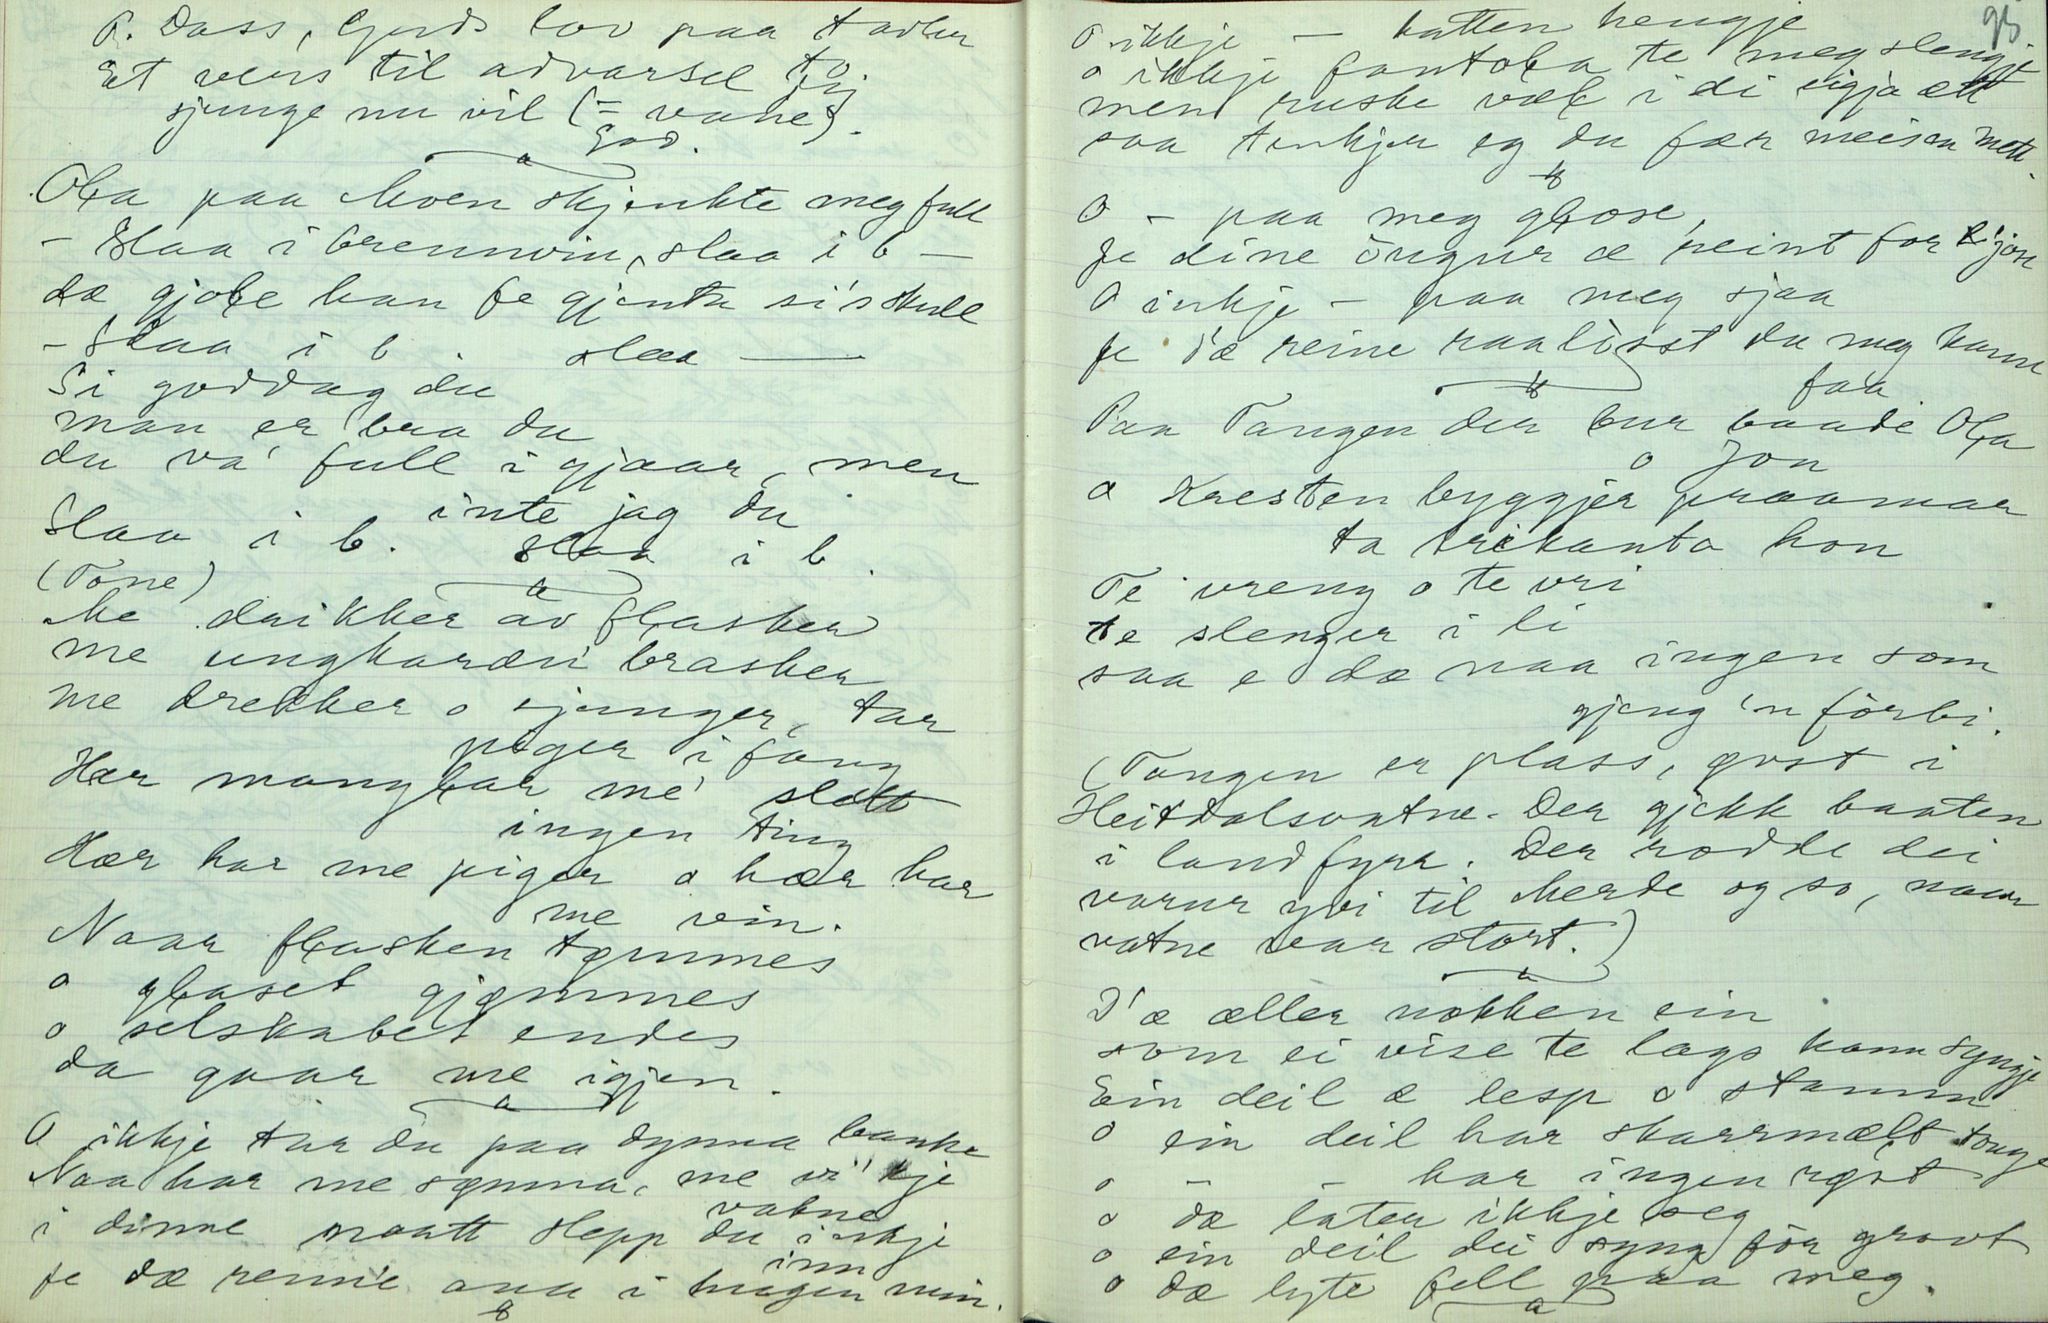 P. Dass, Guds lov paa tavler
Et vers til advarsel to
sjunge nu vil (= vane).
God.
Ola paa Moen skjenkte meg full
- Slaa i brennvin, slaa i b -
dæ gjole han fe gjenta si's skull
- Slaa i b. slaa —
Si goddag du
man er bra du
du va' full i gjaar, men
inte jag du
Slaa i b. slaa i b.
(Tone)
Me drikker av flasker
me ungkaran brasker
me drekker o sjunger, tar
piger i fang
Hær manglar me slett
ingen ting
Hær har me piger o hær har
me vin.
Naar flasken tømmes
o glaset gjømmes
o selskabet endes
da gaar me igjen.
O ikkje tar du paa dynna banke
Naa har me sømna, me vi' kje
vakne
i dinne naatt slepp du inkje
inn
fe dæ renn'e ana i hugen min.
95
O ikkje - hatten hengje
o ikkje fantola te meg slengje
men ruske væl i di eigja ætt
saa tenkjer eg du fær meisen mett.
O - paa meg glose,
fe dine öugur æ reint for ljose
O inkje - paa meg sjaa
fe d'æ reine raalisst du meg kann
faa
Paa Tangen der bur baade Ola
o Jon
o Kresten byggjer praamar
ta trikanta hon
Te vreng o te vri
te slenger i li
saa e dæ naa ingen som
gjeng 'n förbi.
(Tangen er plass, gost i
Heitdalsvatne. Der gjekk baaten
i land fyrr. Der rodde dei
varur yvi til Merde og so, naar
vatne var stort.)
D'æ æller nokken ein
som ei vise te lags kann syngje
Ein deil æ lesp o stamm
o ein deil har skarrmælt tonge
o - - har ingen røst
o dæ later ikkje seg
o ein deil dei syng för grovt
o dæ lyte fell paa meg.